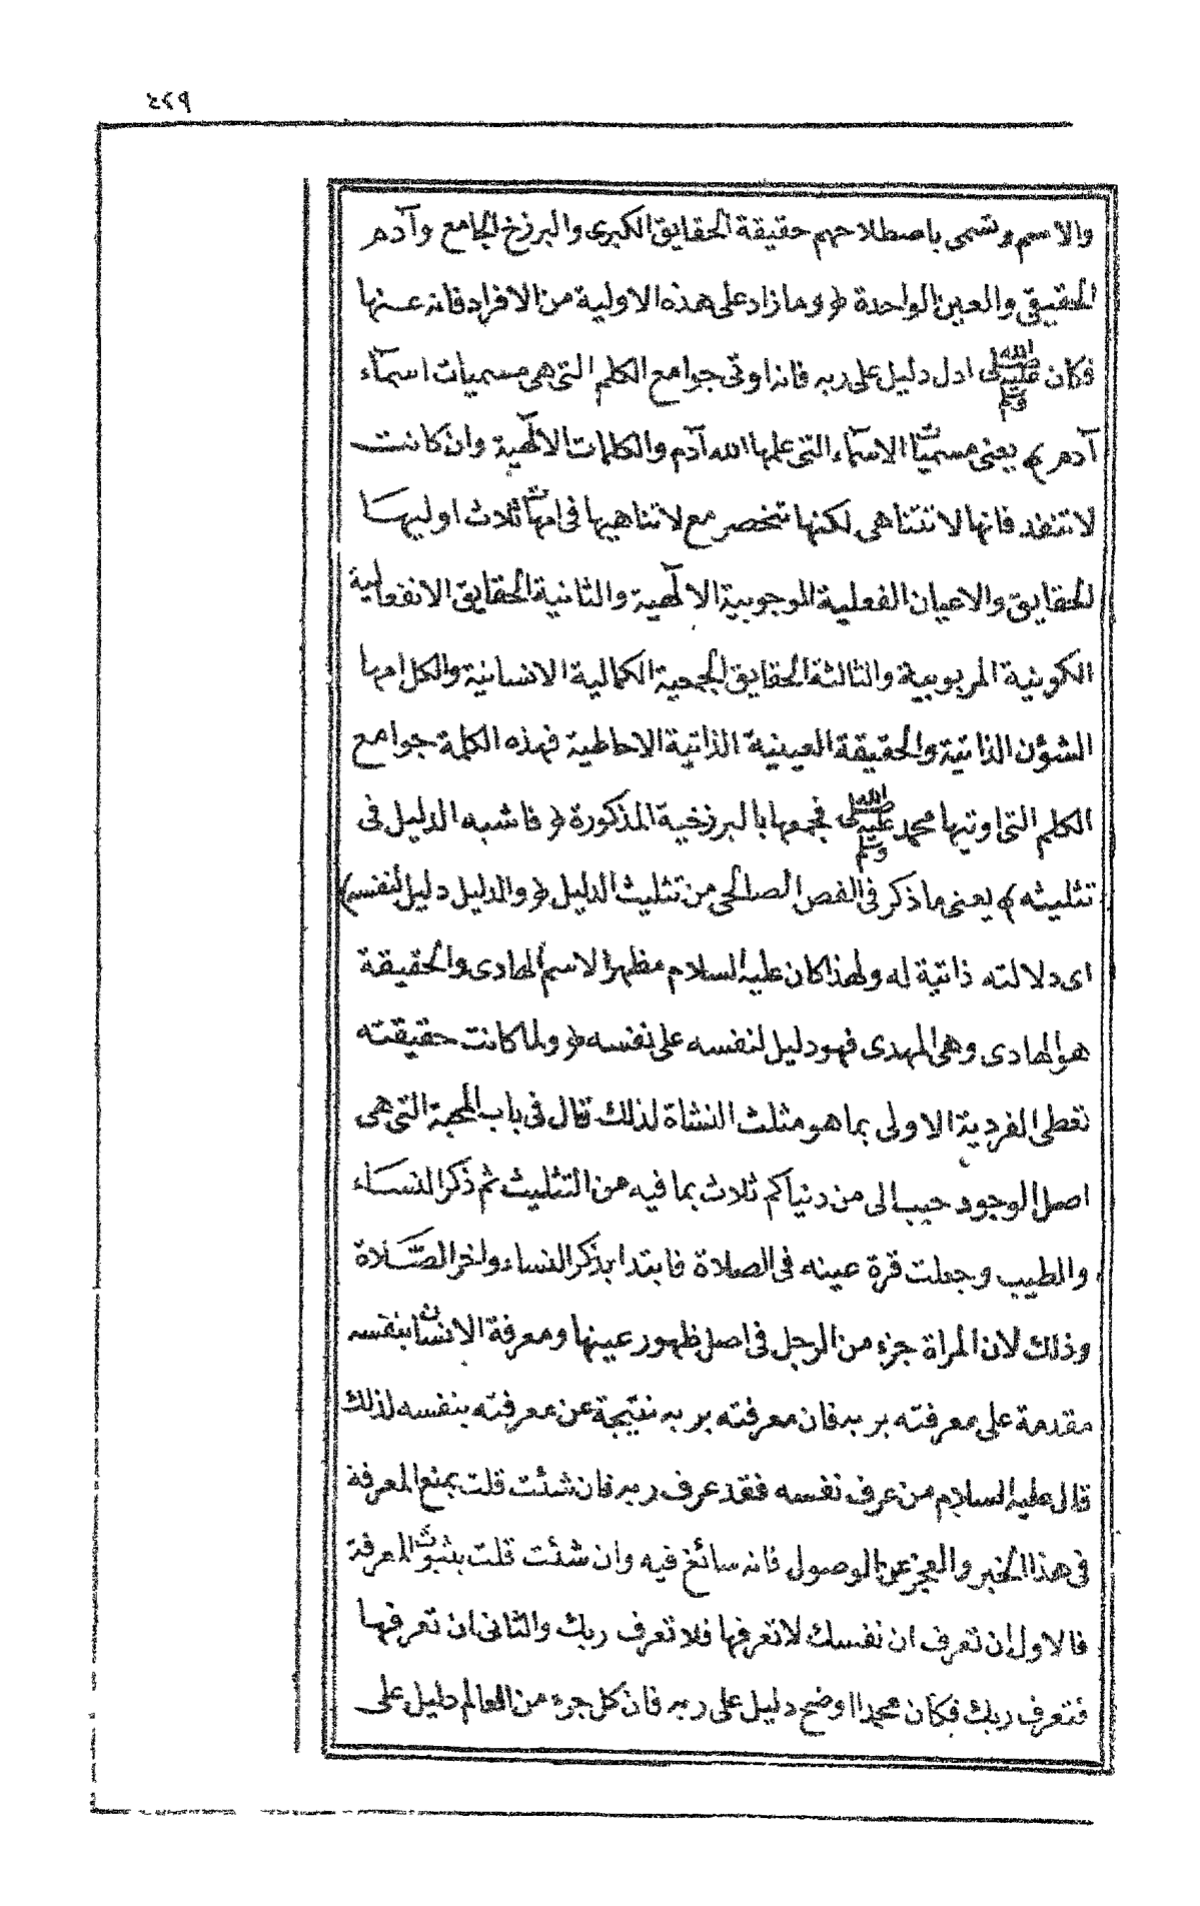 ٤٢٩
والاسم وتسمى باصطلاحهم حقيقة الحقايق الكبرى والبرزخ الجامع وآدم
الحقيقى والعين الواحدة ﴿ وما زاد على هذه الاولية من الافراد فانه عنها
فكان صلى الله عليه وسلم ادل دليل على ربه فانه اوتى جوامع الكلم التى هى مسميات اسمآء
آدم ﴾ يعنى مسميات الاسمآء التى علمها الله آدم والكلمات الالٓهية وان كانت
لا تنفد فانها لا تتناهى لكنها تنحصر مع لا تناهيها فى امهات ثلاث اوليها
الحقايق والاعيان الفعلية الوجوبية الالٓهية والثانية الحقايق الانفعالية
الكونية المربوبية والثالثة الحقايق الجمعية الكمالية الانسانية والكل امها
الشؤن الذاتية والحقيقة العينية الذاتية الاحاطية فهذه الكلمة جوامع
الكلم التى اوتيها محمد صلى الله عليه وسلم فجمعها بالبرزخية المذكورة ﴿ فاشبه الدليل فى
تثليثه ﴾ يعنى ما ذكر فى الفص الصالحى من تثليث الدليل ﴿ والدليل دليل لنفسه ﴾
اى دلالته ذاتية له ولهذا كان عليه السلام مظهرا لاسم الهادى والحقيقة
هو الهادى وهى المهدى فهو دليل لنفسه على نفسه ﴿ ولما كانت حقيقته
تعطى الفردية الاولى بما هو مثلث النشاة لذلك قال فى باب المحبة التى هى
اصل الوجود حبب الى من دنياكم ثلاث بما فيه من التثليث ثم ذكر النساء
والطيب وجعلت قرة عينه فى الصلاة فابتدا بذكر النساء واخر الصلاة
وذلك لان المراة جزء من الرجل فى اصل ظهور عينها ومعرفة الانسان بنفسه
مقدمة على معرفته بربه فان معرفته بربه نتيجة عن معرفته بنفسه لذلك
قال عليه السلام من عرف نفسه فقد عرف ربه فان شئت قلت بمنع المعرفة
فى هذا الخبر والعجز عن الوصول فانه سائغ فيه وان شئت قلت بثبوت المعرفة
فالاول ان تعرف ان نفسك لا تعرفها فلا تعرف ربك والثانى ان تعرفها
فتعرف ربك فكان محمدا اوضح دليل على ربه فان كل جزء من العالم دليل على